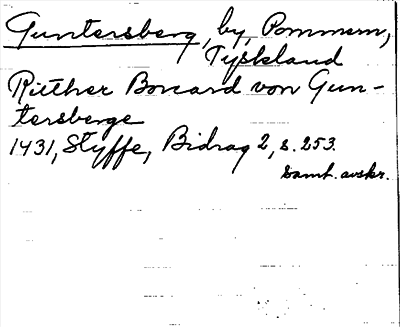 Guntersberg, by, Pommern,
Tyskland
Riether Boncard von Gun-
tersberge
1431, Styffe, Bidrag 2, s. 253.
Samt. avskr.